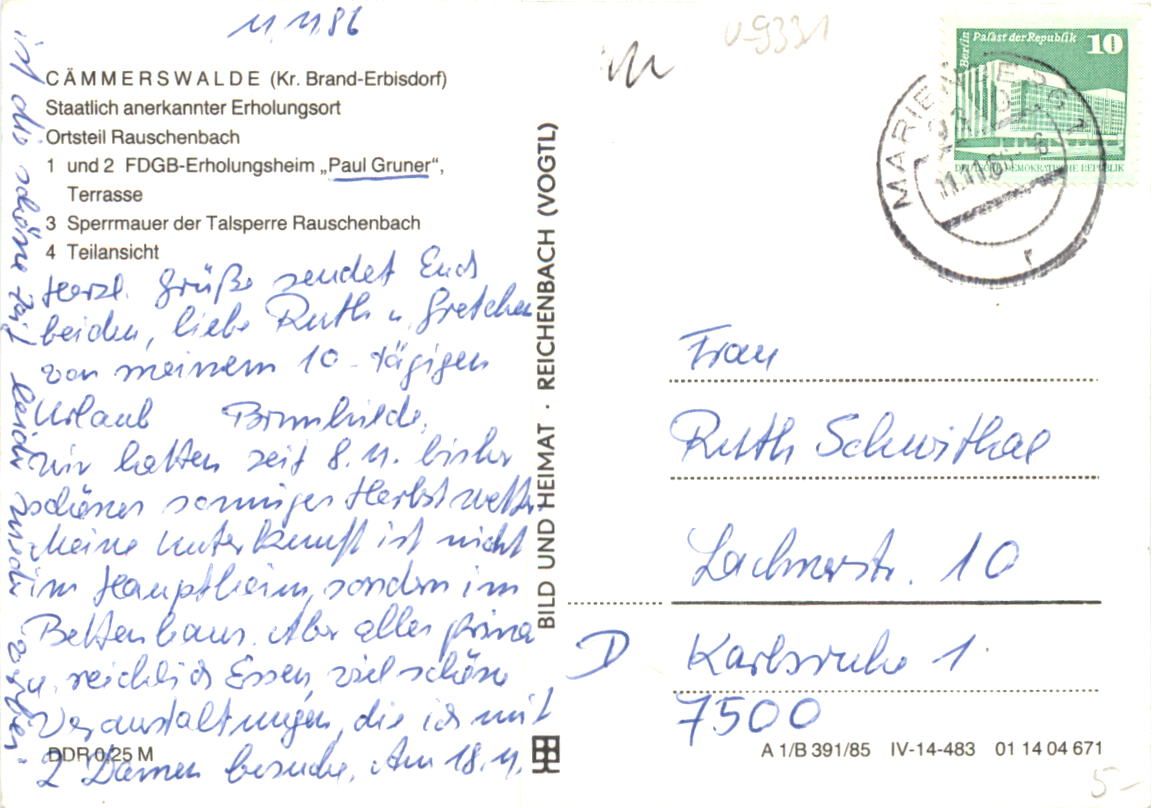 11.11.86
CÄMMERSWALDE (Kr. Brand-Erbisdorf)
Staatlich anerkannter Erholungsort
Ortsteil Rauschenbach
1 und 2 FDGB-Erholungsheim „Paul Gruner“,
Terrasse
3 Sperrmauer der Talsperre Rauschenbach
4 Teilansicht
Herzl. Grüße sendet Euch
beiden, liebe Ruth u. Gretchen
von meinem 10-tägigen
Urlaub Brunhilde.
Wir hatten seit 8.11. bisher
schönes sonniges Herbstwetter.
Meine Unterkunft ist nicht
im Hauptheim, sondern im
Bettenhaus. Aber alles prima
u. reichlich Essen, viel schöne
Veranstaltungen, die ich mit
2 Damen besuche. Am 18.11.
ist die schöne Zeit leider wieder vorbei
DDR 0/25 M
BILD UND HEIMAT · REICHENBACH (VOGTL)
V-9331
Berlin Palast der Republik 10
DEUTSCHE DEMOKRATISCHE REPUBLIK
MARIENBERG 1
11.11.86
r
Frau
Ruth Schwithal
Lachnerstr. 10
D Karlsruhe 1.
7500
A 1/B 391/85 IV-14-483 01 14 04 671
5-